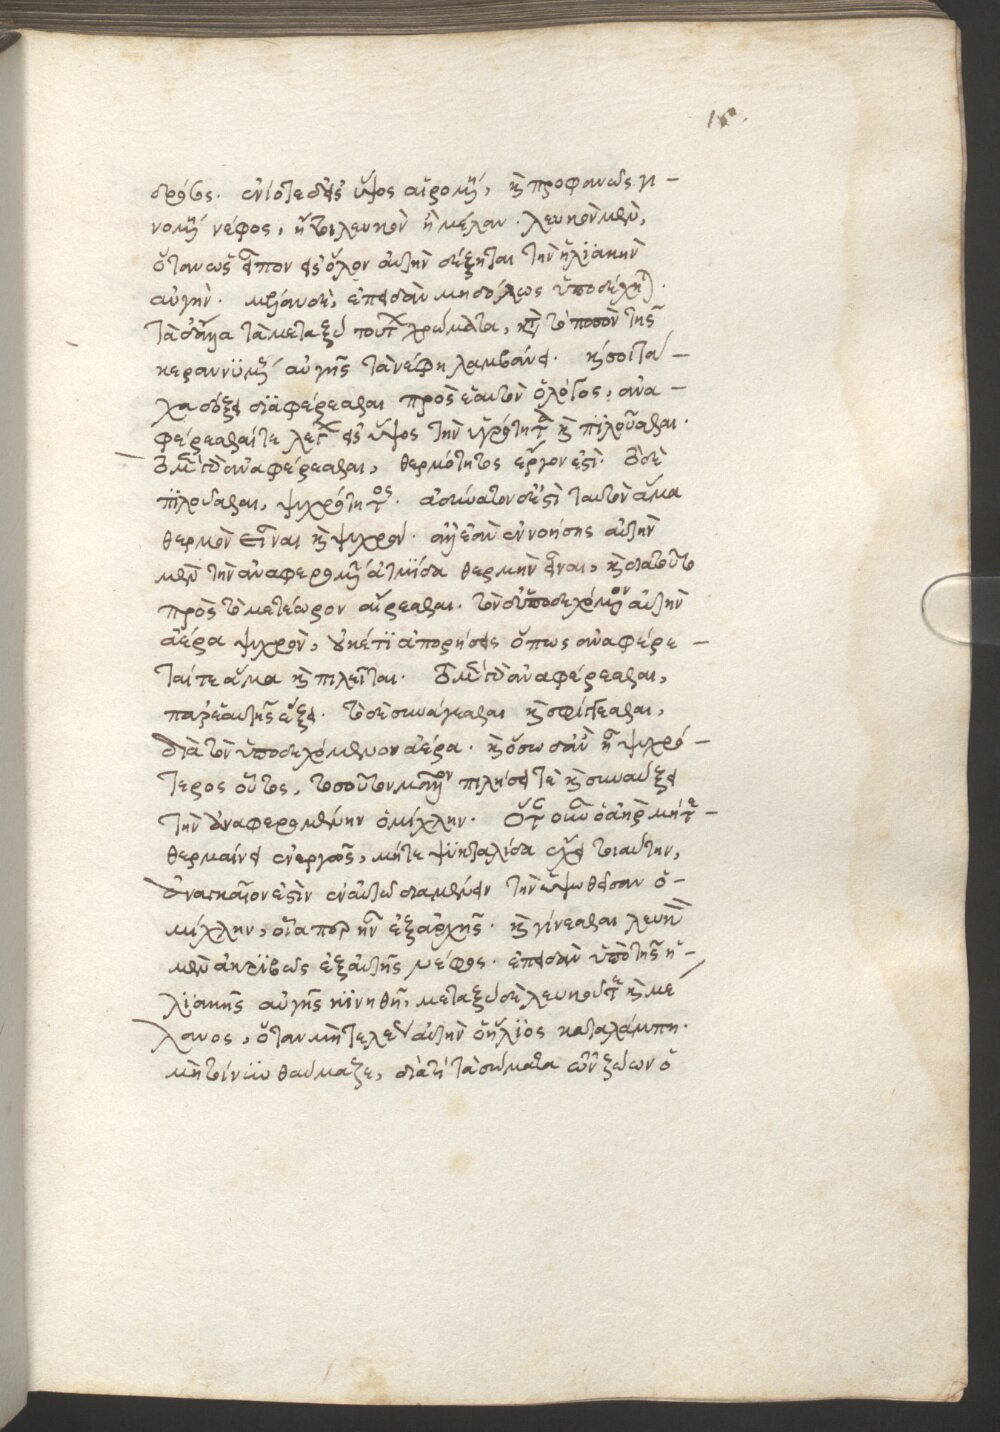 δρόσος. ἐνίοτε δὲ εἰς ὕψος αἰρομένη, καὶ προφανῶς γι-
νομένη νέφος, ἤτοι λευκὸν ἢ μέλαν. λευκὸν μὲν,
ὅταν ὡς εἶπον εἰς ὅλον αὐτὴν δέξηται τὴν ἡλιακὴν
αὐγήν. μέλαν δὲ, ἐπειδὰν μηδόλως ὑποδέχηται.
τὰ δ' ἄλλα τὰ μεταξὺ τούτων χρώματα, κατὰ τὸ ποσὸν τῆς
κεραννυμένης αὐγῆς τὰ νέφη λαμβάνει. καίτοι τά-
χα δόξει διαφέρεσθαι πρὸς ἑαυτὸν ὁ λόγος, ἀνα-
φέρεσθαί τε λέγων εἰς ὕψος τὴν ὑγρότητα καὶ πιλοῦσθαι.
τὸ μὲν γὰρ ἀναφέρεσθαι, θερμότητος ἔργον ἐστὶ. τὸ δὲ
πιλοῦσθαι, ψυχρότητος. ἀδύνατον δέ ἐστι ταυτὸν ἅμα
θερμὸν εἶναι καὶ ψυχρόν. ἀλλ' ἐὰν ἐννοήσῃς αὐτὴν
μὲν τὴν ἀναφερομένην ἀτμίδα θερμὴν εἶναι, καὶ διατοῦτο
πρὸς τὸ μετέωρον αἴρεσθαι. τὸν δ' ὑποδεχόμενον αὐτὴν
ἀέρα ψυχρὸν, οὐκέτι ἀπορήσεις ὅπως ἀναφέρε-
ταί τε ἅμα καὶ πιλεῖται. τὸ μὲν γὰρ ἀναφέρεσθαι,
παρ' ἑαυτῆς ἕξει. τὸ δὲ συνάγεσθαι καὶ σφίγγεσθαι,
διὰ τὸν ὑποδεχόμενον ἀέρα. καὶ ὅσω δ' ἂν ᾖ ψυχρό-
τερος οὗτος, τοσοῦτον μᾶλλον πιλήσει τὲ καὶ συνάξει
τὴν ἀναφερομένην ὁμίχλην. ὅταν οὖν ὁ ἀὴρ μήτε
θερμαίνει ἐνεργῶς, μήτε ψύχειν ἔχει τοιαύτην,
ἀναγκαῖον ἐστὶν ἐν αὐτῷ διαμένειν τὴν ὑψωθεῖσαν ὁ-
μίχλην, οἵα περ ἦν ἐξ ἀρχῆς. καὶ γίνεσθαι λευκὸν
μὲν ἀκριβῶς ἐξ αὐτῆς νέφος. ἐπειδὰν ὑπὸ τῆς ἡ-
λιακῆς αὐγῆς κινηθῇ, μεταξὺ δὲ λευκοῦ τε καὶ μέ-
λανος, ὅταν μὴ τελείως αὐτὴν ὁ ἥλιος καταλάμπῃ.
μὴ τοίνυν θαύμαζε, διὰ τί τὰ σώματα τῶν ζώων ὁ